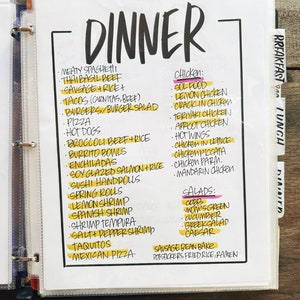 DINNER
MEATY SPAGHETTI
THAI BASIL BEEF
SAUSAGE + RICE +
TACOS (CARNITAS/BEEF)
BURGERS/BURGER SALAD
PIZZA
HOT DOGS
BROCCOLI BEEF + RICE
BURRITO BOWLS
ENCHILADAS
SOY GLAZED SALMON + RICE
SUSHI HANDROLLS
SPRING ROLLS
LEMON SHRIMP
SPANISH SHRIMP
SHRIMP TEMPURA
SALT + PEPPER SHRIMP
TAQUITOS
MEXICAN PIZZA
CHICKEN:
SOUL FOOD
LEMON CHICKEN
CRACK IN CHICKEN
TERIYAKI CHICKEN
APRICOT CHICKEN
HOT WINGS
CHICKEN IN LETTUCE
PICCATA CHICKEN
CHICKEN PARM.
MANDARIN CHICKEN
SALADS:
COBB
MOM'S GREEN
CUCUMBER
GREEK SALAD
CAESAR
SAUSAGE BEAN BAKE
POTSTICKERS, FRIED RICE, RAMEN
BREAKFAST
LUNCH
DINNER